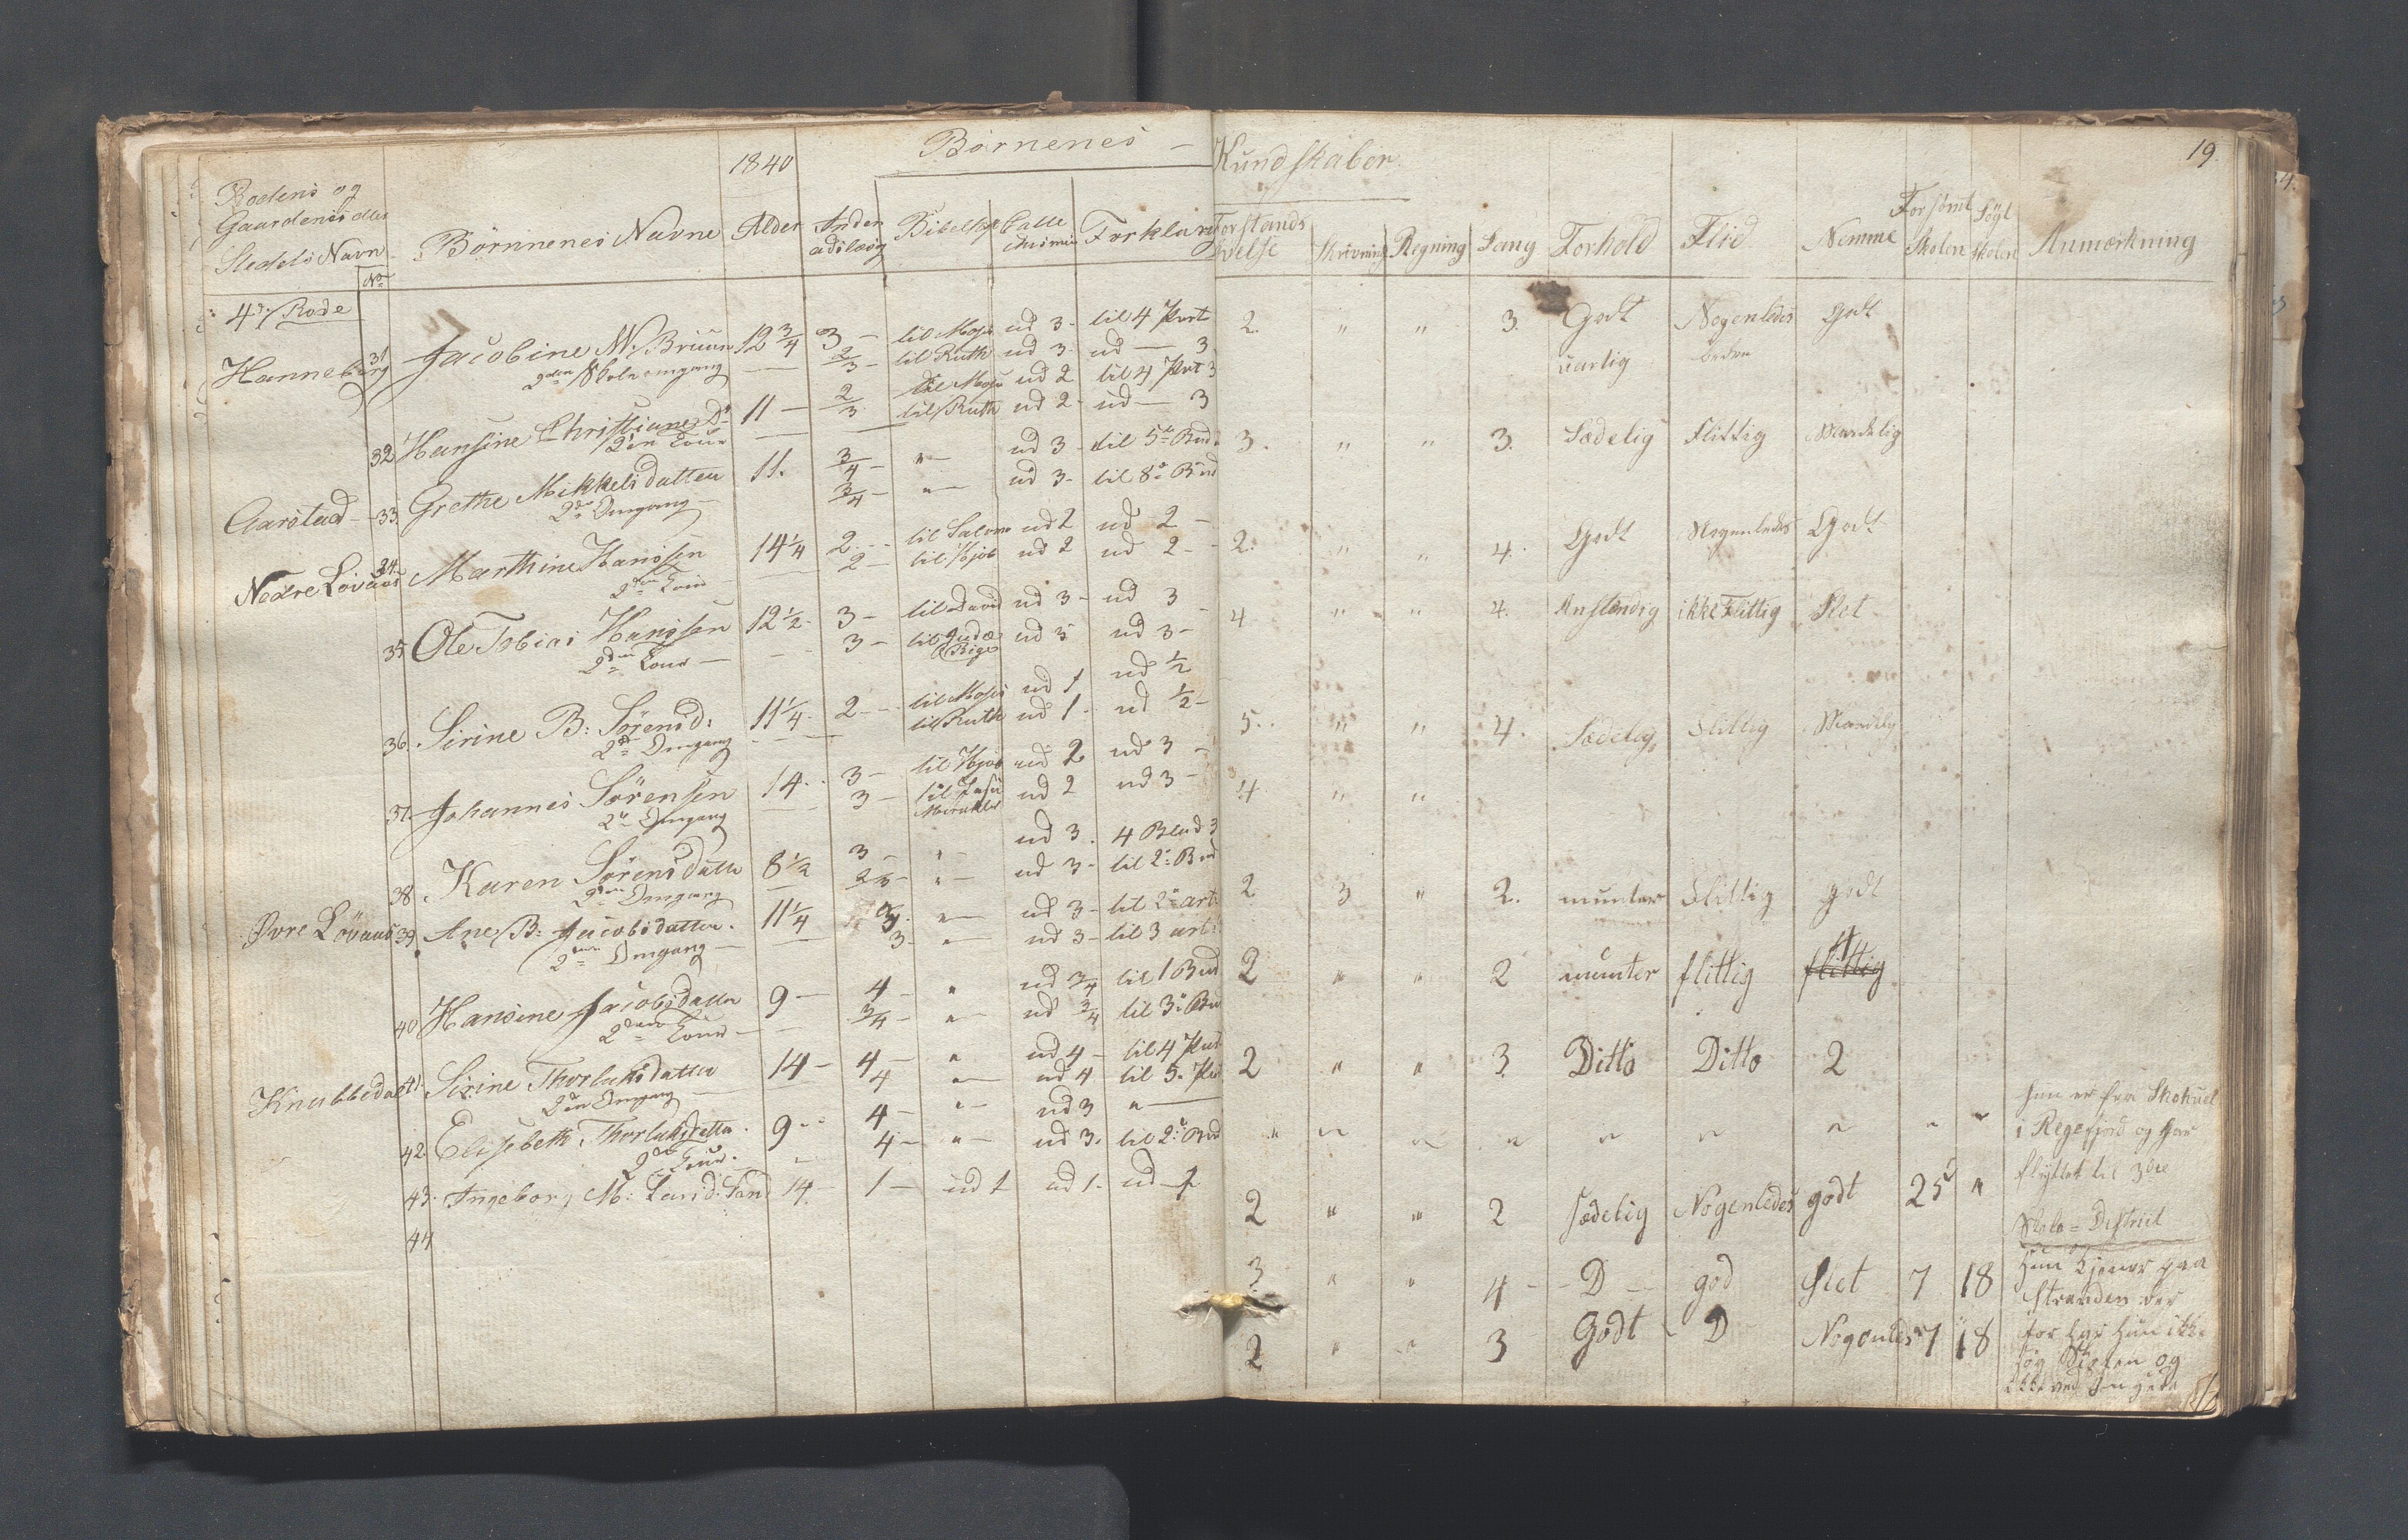 1840 Børnenes – Kundskaber 19.
Rodens og
Gaardenes eller
Stedets Navn
No
Børnenes Navne Alder Inden
adslæsg Bibelhist Catte
chismus Forklaring Forstands
øvelse Skrivning Regning Sang Forhold Flid Nemme Forsømt
Skolen Søgt
Skolen Anmærkning
4de Rode
Hanneberg 31 Jacobine N. Bruun 12 3/4 3 – til Mose ud 3 – til 4 Part 2. " " 3. Godt Nogenledes godt
2den Skoleomgang 2/3 – til Ruth ud 3 ud – 3 uartig bedre
32 Hansine Christiane Do 11 – 2/3 til Mose ud 2 til 4 Part 3 3. " " 3. Sædelig Flittig Maadelig
2den Tour til Ruth ud 2 – ud – 3
Aarstad – 33. Grethe Mikkelsdatter 11. 3/4 – " – ud 3 – til 5te Bud 2. " " 4. Godt Nogenledes Godt
2den Omgang – 3/4 – " – ud 3 – til 8de Bud
Nedre Løvaas 34. Marthine Hanssen 14 1/4 2 – til Salomo ud 2 ud 2 – 4 " " 4. Anstændig ikke Flittig Slet
2den Tour 2 – til Hjob ud 2 ud 2 –
35 Ole Tobias Hanssen 12 1/2 – 3 – til David ud 3 – ud 3 5. " " 4. Sædelig Flittig Maadelig
2den Tour – 3 – til Judæ
Rige ud 3 ud 3 –
36. Sirine B: Sørensd: 11 1/4 – 2 – til Moses ud 1 ud 1/2 4 " "
2den Omgang til Ruth ud 1 – ud 1/2 –
37. Johannes Sørensen 14 – 3 – til Hjob ud 2 ud 3 – 2 3 " 2. munter Flittig godt
2den Omgang 3 – til Jesu
Mirakler ud 2 ud 3 –
38 Karen Sørensdatter 8 1/2 3 – " – ud 3. 4 Blad 3 2 " " 2 munter flittig flittig
2den Omgang 2/3 – " – ud 3 – til 2de Bud
Øvre Løvaas 39. Ane B: Jacobsdatter. 11 1/4 3. " – ud 3 – til 2den art. 2 " " 3 Ditto Ditto 2
2den Omgang – 3 – " – ud 3 – til 3 art.
40 Hansine Jacobsdatter 9 – 4 – " ud 3/4 til 1 Bud " " " " " " " " "
2den Tour – 3/4 – " – ud 3/4 til 3de Bud
Knubbedal 41. Sirine Thorlaksdatter 14 – 4 – " ud 4 – til 4 Part 2 " " 2 sædelig Nogenledes godt 25 "
2den Omgang – 4 " – ud 4 til 5.
42. Elisebeth Thorlaksdatter. 9 – 4 – " – ud 3 " – 3 " " 4 – D – god Slet 7 18
2den Tour. 4 – " – ud 3. til 2de Bud
43. Ingebor, M: Larsd: 14 – 1 – ud 1 ud 1. ud 1 2 " " 3 Godt D Nogenledes 7 18
44
hun er fra
i Regefjord og har
flyttet til 3die
Skole = District
hun tjener paa
Stranden der
for har hun ikke
Skolen og